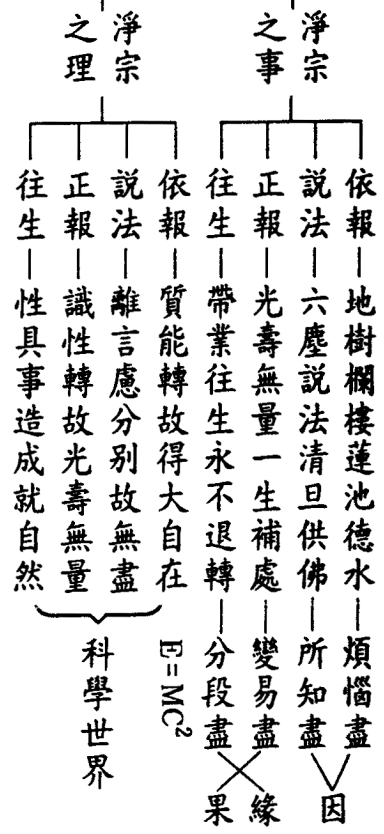 淨宗之事
依報
地樹欄樓蓮池德水
煩惱盡
說法
六塵說法清旦供佛
所知盡
因
正報
光壽無量一生補處
變易盡
往生
帶業往生永不退轉
分段盡
緣
果
淨宗之理
依報
質能轉故得大自在
E=MC²
說法
離言慮分別故無盡
正報
識性轉故光壽無量
往生
性具事造成就自然
科學世界